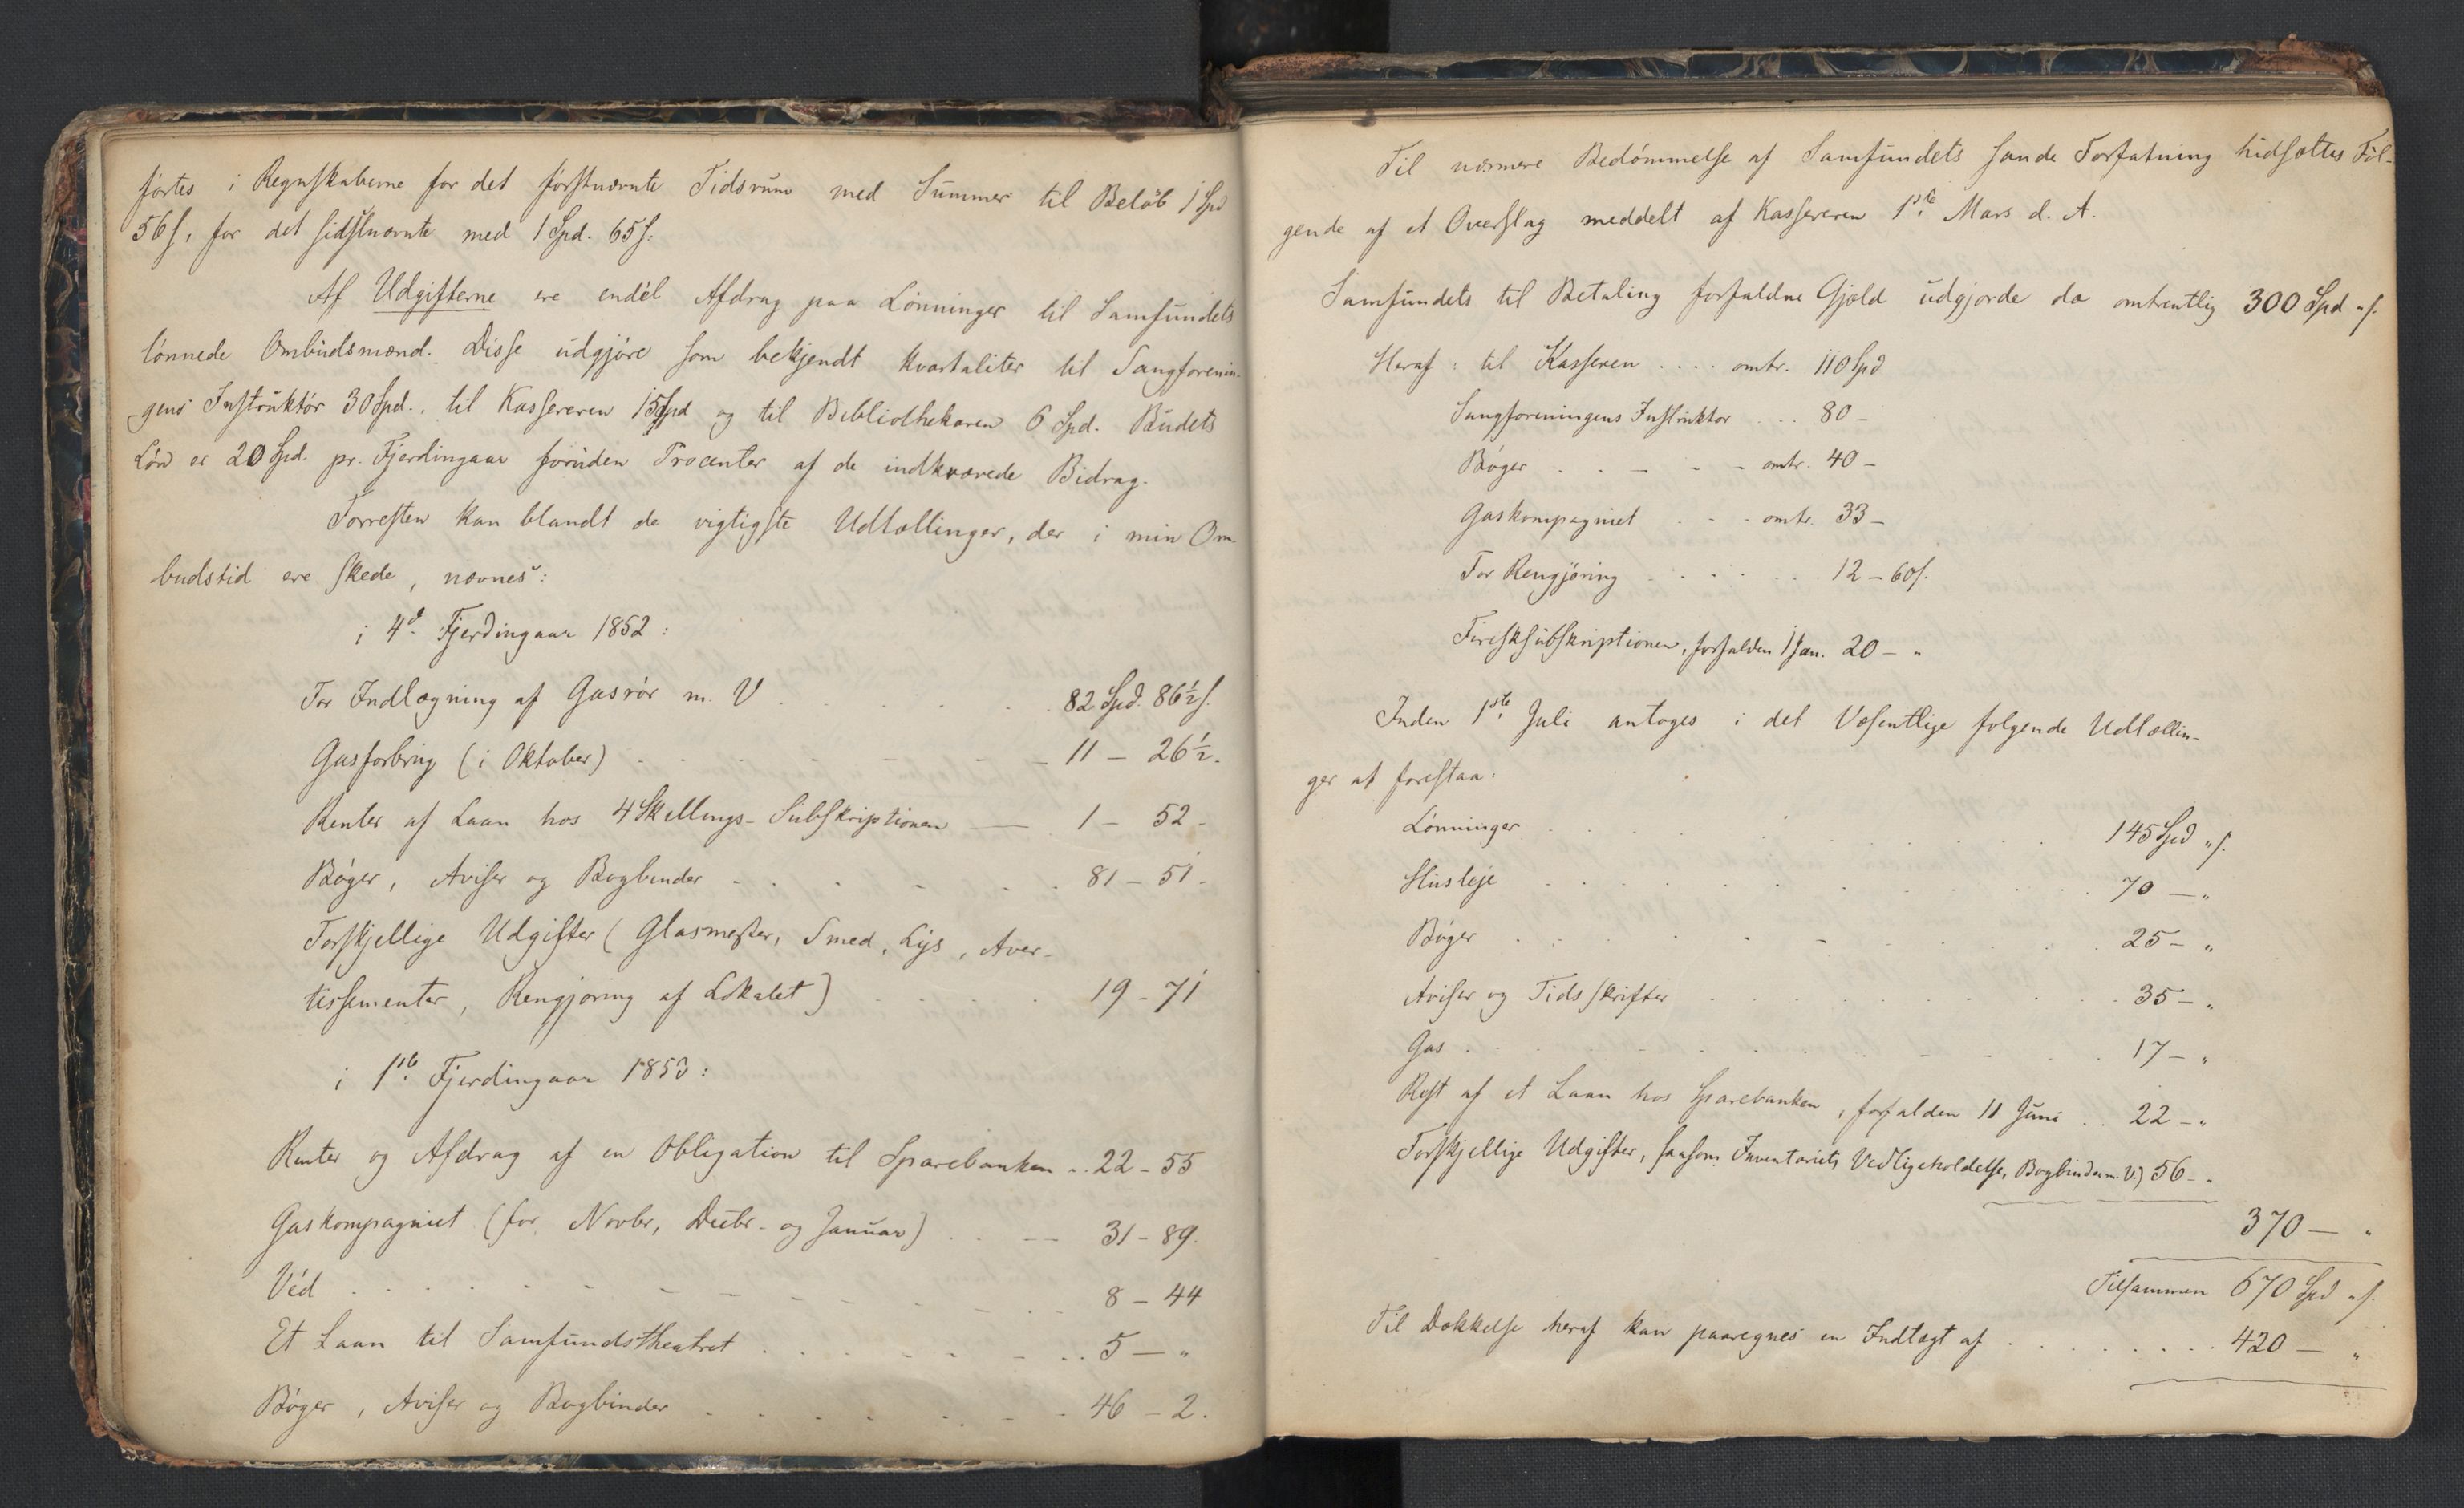 førtes i Regnskaberne for det førstnævnte Tidsrum med Summer til Beløb 1 Spd
56 s, for det sidstnævnte med 1 Spd. 65 s.
Af Udgifterne ere endél Afdrag paa Lønninger til Samfundets
lønnede Ombudsmænd. Disse udgjøre som bekjendt kvartaliter til Sangforenin-
gens Instruktør 30 Spd., til Kassereren 15 Spd og til Bibliothekaren 6 Spd. Budets
Løn er 20 Spd. pr. Fjerdingaar foruden Procenter af de indkrævede Bidrag.
Forresten kan blandt de vigtigste Udtællinger, der i min Om-
budstid ere skede, nævnes:
i 4d. Fjerdingaar 1852:
For Indlægning af Gasrør m. V . . . . . 82 Spd. 86½ s.
Gasforbrug (i Oktober) . . . . . 11 – 26½.
Renter af Laan hos 4 Skillings-Subskriptionen — 1 – 52 -
Bøger, Aviser og Bogbinder . . . . . 81 – 51.
Forskjellige Udgifter (Glasmester, Smed, Lys, Aver-
tissementer, Rengjøring af Lokalet) . . . . 19 - 71
i 1ste. Fjerdingaar 1853:
Renter og Afdrag af en Obligation til Sparebanken . . 22 - 55
Gaskompagniet (for Novbr, Decbr- og Januar) . . . 31 - 89.
Véd . . . . . 8 – 44
Et Laan til Samfundstheatret . . . . . 5 — "
Bøger, Aviser og Bogbinder . . . . . 46 – 2.
Til nærmere Bedømmelse af Samfundets sande Forfatning hidsættes Føl-
gende af et Overslag meddelt af Kassereren 1ste. Mars d. A.
Samfundets til Betaling forfaldne Gjæld udgjorde da omtrentlig 300 Spd " s.
Heraf: til Kasseren . . . . omtr. 110 Spd
Sangforeningens Instruktør . . . 80 –
Bøger . . . . . omtr. 40 –
Gaskompagniet . . . omtr. 33 –
For Rengjøring . . . . . 12 – 60 s.
FireskSubskriptionen, forfalden 1 Jan. 20 – "
Inden 1ste. Juli antages i det Væsentlige følgende Udtællin-
ger at forestaa:
Lønninger . . . . . 145 Spd " s.
Husleje . . . . . 70 — "
Bøger . . . . . 25 – "
Aviser og Tidsskrifter . . . . . 35 – "
Gas . . . . . 17 – "
Rest af et Laan hos Sparebanken, forfalden 11 Juni . . 22 – "
Forskjellige Udgifter, saasom Inventariets Vedligeholdelse, Bogbinder m. V.) 56 – "
370 — "
Tilsammen 670 Spd " s.
Til Dækkelse heraf kan paaregnes en Indtægt af . . . . . 420 — "